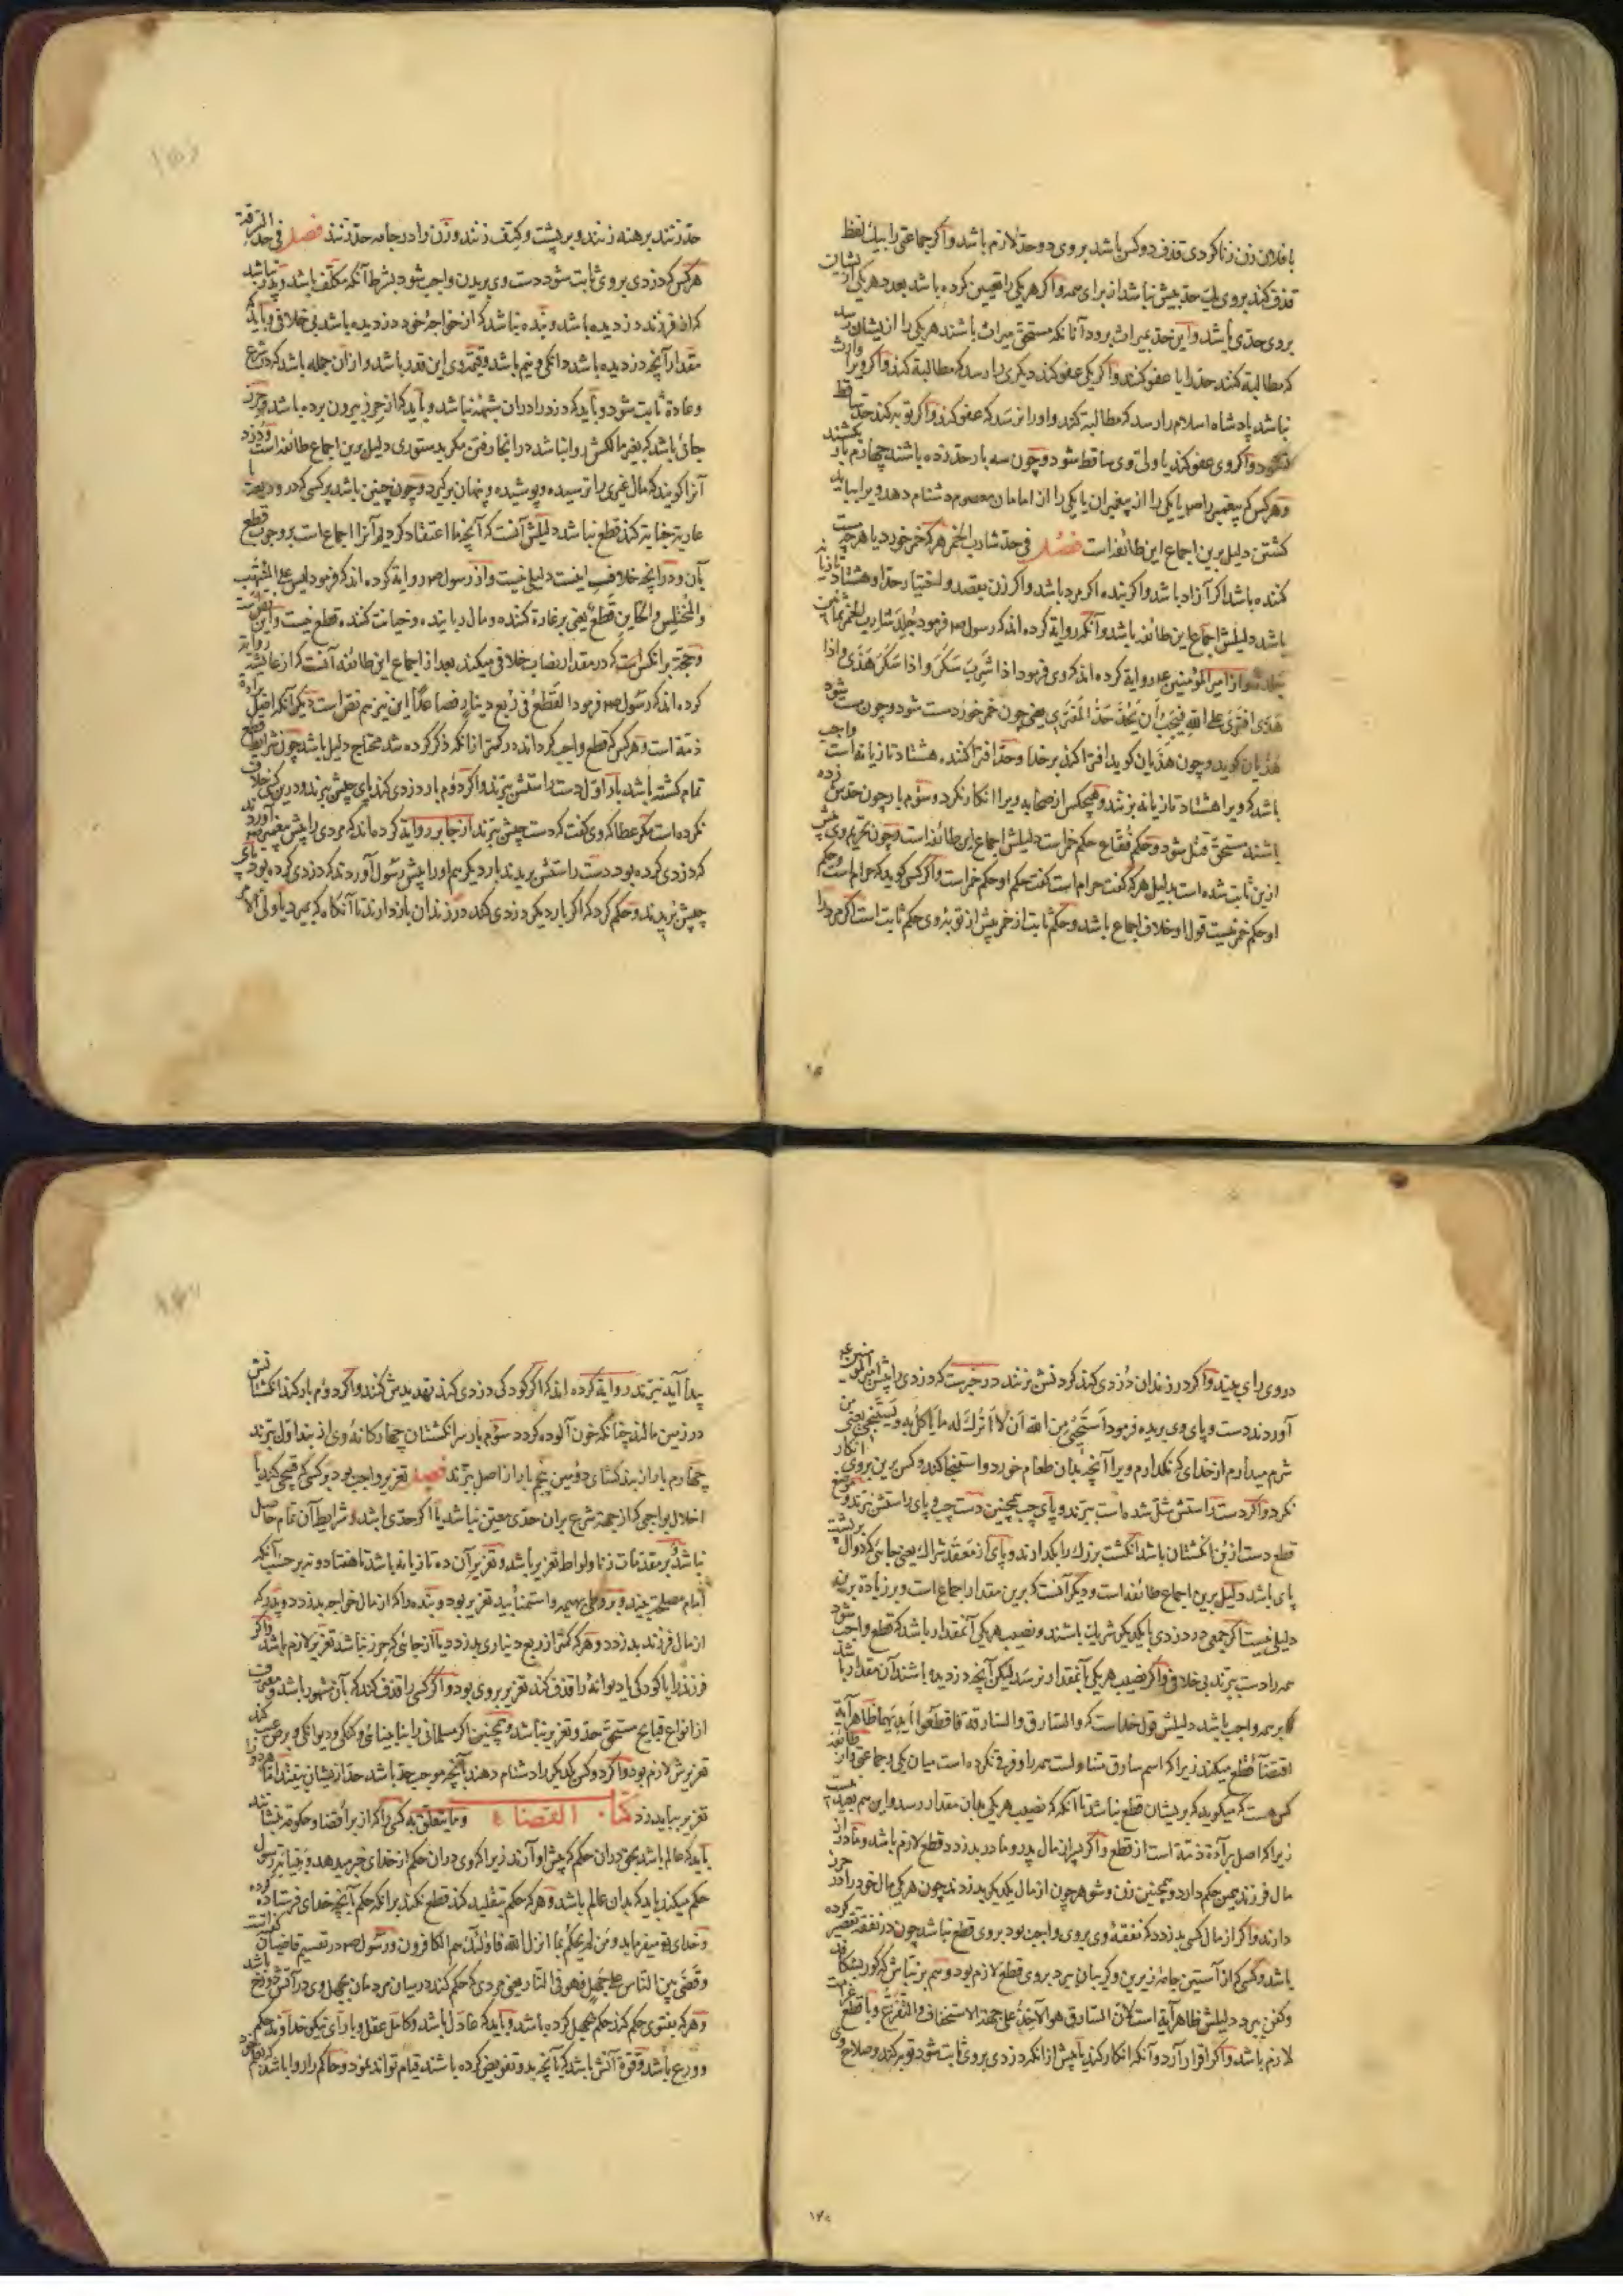 با فلان زن زنا کردی قذف دو کس باشد بر وی دو حد لازم باشد واکر جماعتی را بیک لفظ
قذف کند بر وی یک حد بیش نباشد از برای همه واکر هر یکی را تعیین کرده باشد بعدد هر یکی از یشان
بر وی حدی باشد واین حد بمیراث برود آنانکه مستحق میراث باشند هر یکی را از یشان رسد
که مطالبه کنند حد را یا عفو کنند واکر یکی عفو کند دیکری را رسد که مطالبة کند واکر ویرا وارث
نباشد پادشاه اسلام را رسد که مطالبة کند واو را نرسد که عفو کند واکر توبه کند حد ساقط
نشود واکر وی عفو کند یا ولی وی ساقط شود وچون سه بار حد زده باشند چهارم بار بکشند
وهر کس که پیغمبر را ص یا یکی را از پیغمبران یا یکی را از امامان معصوم دشنام دهد ویرا بباید
کشتن دلیل برین اجماع این طائفه است فصل فی حد شارب الخمر هر که خمر خورد یا هر چه مست
کننده باشد اکر آزاد باشد واکر بنده اکر مرد باشد واکر زن بقصد واختیار حد او هشتاد تازیانه
باشد دلیلش اجماع این طائفه باشد وآنکه روایة کرده اند که رسول ص فرمود جلد شارب الخمر ثمانین
جلدة واز امیر المؤمنین ع روایة کرده اند که وی فرمود اذا شرب سکر واذا سکر هذی واذا
هذی افتری علی الله فیجب أن یحد حد المفتری یعنی چون خمر خورد مست شود وچون مست شود
هذیان کوید وچون هذیان کوید افترا کند بر خدا وحد افترا کننده هشتاد تازیانه است واجب
باشد که ویرا هشتاد تازیانه بزنند وهیچکس از صحابه ویرا انکار نکرد وسوم بار چون حدش زده
باشند مستحق قتل شود وحکم فقاع حکم خمر است دلیلش اجماع این طائفه است وچون تحریم وی پیش
ازین ثابت شده است بدلیل هر که کفت حرام است کفت حکم او حکم خمر است واکر کسی کوید که حرام است وحکم
او حکم خمر نیست قول او خلاف اجماع باشد وحکم ثابت از خمر پیش از توبه وی حکم ثابت است اکر مرد را
حد زنند برهنه زنند وبر پشت وکتف زنند وزن را در جامه حد زنند فصل فی حد السرقة
هر کس که دزدی بر وی ثابت شود دست وی بریدن واجب شود بشرط آنکه مکلف باشد وپدر نباشد
که از فرزند دزدیده باشد وبنده نباشد که از خواجهٔ خود دزدیده باشد بی خلافی وباید که
مقدار آنچه دزدیده باشد دانکی ونیم باشد وقیمت وی این قدر باشد واز آن جمله باشد که در شرع
وعادة ثابت شود وباید که دزد را در ان شبهه نباشد وباید که از حرز بیرون برده باشد وحرز
جائی باشد که بغیر مالکش روا نباشد در انجا رفتن مکر بدستوری دلیل برین اجماع طائفه است ودزد
آنرا کویند که مال غیری را ترسیده وپوشیده وپنهان برکیرد وچون چنین باشد بر کسی که در ودیعة یا
عاریة خیانة کند قطع نباشد دلیلش آنست که آنچه ما اعتقاد کردیم آنرا اجماع است بر وجوب قطع
بآن ودر آنچه خلاف اینست دلیلی نیست واز رسول ص روایة کرده اند که فرمود لیس علی المنتهب
والمختلس والخاین قطع یعنی بر غارة کننده ومال رباینده وخیانت کننده قطع نیست واین نص است
وحجة بر انکس است که در مقدار نصاب خلافی میکند بعد از اجماع این طائفه آنست که از عائشه روایة
کرده اند که رسول ص فرمود القطع فی ربع دینار فصاعدا این نیز هم نص است دیکر آنکه اصل براءة
ذمة است وهر کس که قطع واجب کرداند در کمتر از انکه ذکر کرده شد محتاج دلیل باشد چون شرایط قطع
تمام کشته باشد بار اول دست راستش ببرند واکر دوم بار دزدی کند پای چپش ببرند ودرین کس خلاف
نکرده است مکر عطا که وی کفت که دست چپش ببرند از جابر روایة کرده اند که مردی را پیش پیغمبر ص آوردند
که دزدی کرده بود دست راستش بریدند بار دیکر هم او را پیش رسول آوردند که دزدی کرده بود پای
چپش بریدند وحکم کرد که اکر بار دیکر دزدی کند در زندان باز دارند تا آنکاه که بمیرد یا ولی الامر
در وی رای بیند واکر در زندان دزدی کند کردنش بزنند در خبرست که دزدی را پیش امیر المؤمنین ع
آوردند دست وپای وی بریده فرمود استحیی من الله ان لا أترک له ما یأکل به ویستنجی یعنی من
شرم میدارم از خدای که نکذارم ویرا آنچه بدان طعام خورد واستنجا کند وکس برین بر وی انکار
نکرد واکر دست راستش شل شده است ببرند وپای چپ همچنین دست چپ وپای راستش نبرند وموضع
قطع دست از بن انکشتان باشد انکشت بزرک را بکذارند وپای از معقد شراک یعنی جائی که دوال بر پشت
پای باشد دلیل برین اجماع طائفه است ودیکر آنست که برین مقدار اجماع است وبر زیادة برین
دلیل نیست اکر جمعی در دزدی با یکدیکر شریک باشند ونصیب هر یکی آنمقدار باشد که قطع واجب شود
همه را دست ببرند بی خلاف واکر نصیب هر یکی بآنمقدار نرسد لیکن آنچه دزدیده باشند آن مقدار باشد
بر همه واجب باشد دلیلش قول خداست که والسارق والسارقة فاقطعوا أیدیهما ظاهر آیة
اقتضاء قطع میکند زیرا که اسم سارق متناولست همه را وفرقی نکرده است میان یکی وجماعتی واز طائفه
کس هست که میکوید که بر یشان قطع نباشد تا آنکه که نصیب هر یکی بدان مقدار رسد واین هم بعید نیست
زیرا که اصل براءة ذمة است از قطع واکر پسر از مال پدر ومادر بدزدد قطع لازم باشد ومادر از
مال فرزند همین حکم دارد وهمچنین زن وشوهر چون از مال یکدیکر بدزدند چون هر یکی مال خود را در حرز
دارند واکر از مال کسی بدزدد که نفقهٔ وی بر وی واجب بود بر وی قطع نباشد چون در نفقه تقصیر کرده
باشد وکسی که از آستین جامهٔ زیرین وکریبان ببرد بر وی قطع لازم بود وهم بر نباش که کور بشکافد
وکفن ببرد دلیلش ظاهر آیة است لان السارق هو الآخذ علی جهة الاستخفاء والتفزع وبا قطع غرامت
لازم باشد واکر اقرار آرد وآنکه انکار کند یا پیش از انکه دزدی بر وی ثابت شود توبه کند وصلاح وی
پیدا آید نبرند روایة کرده اند که اکر کودکی دزدی کند تهدیدش کنند واکر دوم بار کند انکشتانش
در زمین مالند چنانکه خون آلوده کردد سوم بار سر انکشتان چهارکانهٔ وی از بند اول ببرند
چهارم بار از بندکشای دومین پنجم بار از اصل ببرند فصل تعزیر واجب بود بر کسی که قبیحی کند یا
اخلال بواجبی که از جهة شرع بران حدی معین نباشد یا اکر حدی باشد وشرایط آن تمام حاصل
نباشد وبر مقدمات زنا ولواط تعزیر باشد وتعزیر آن ده تازیانه باشد تا هفتاد ونه بر حسب آنکه
امام مصلحة بیند وبر وطی بهیمه واستمنا بید تعزیر بود وبنده را که از مال خواجه بدزدد وپدر که
از مال فرزند بدزدد وهر که کمتر از ربع دیناری بدزدد یا از جائی که حرز نباشد تعزیر لازم باشد واکر
فرزند را یا کودکی یا دیوانهٔ را قذف کند تعزیر بر وی بود واکر کسی را قذف کند که بآن مشهور باشد ومعترف
از انواع قبایح مستحق حد وتعزیر نباشد وهمچنین اکر مسلمانی را بنابینائی وکنکی ودیوانکی وبرص عیب کند
تعزیرش لازم بود واکر دو کس یکدیکر را دشنام دهند بآنچه موجب حد باشد حد از یشان بیفتد اما هر دو را
تعزیر بباید زد کتاب القضاء وما یتعلق به کسی را که از برا قضا وحکومة بنشانند
باید که عالم باشد بحق در ان حکم که پیش او آرند زیرا که وی دران حکم از خدای خبر میدهد ونیابة رسول
حکم میکند باید که بدان عالم باشد وهر که حکم بتقلید کند قطع نکند بر انکه حکم آنچه خدای فرستاده کرده
وخدای تع میفرماید ومن لم یحکم بما انزل الله فاولئک هم الکافرون ورسول ص در تقسیم قاضیان کفت
وقضی بین الناس علی جهل فهو فی النار یعنی مردی که حکم کند در میان مردمان بجهل وی در آتش دوزخ باشد
وهر که بفتوی حکم کند حکم بجهل کرده باشد وباید که عادل باشد وکامل عقل وبا رأی نیکو خداوند حکم
وورع باشد وقوة آنش باشد که بآنچه بدو تفویض کرده باشند قیام تواند نمود وحاکم را روا باشد که